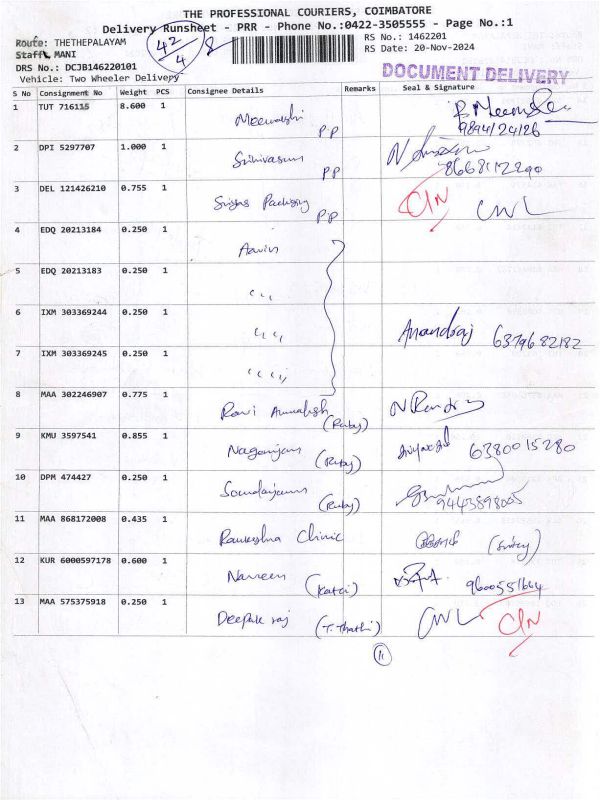 THE PROFESSIONAL COURIERS, COIMBATORE
Delivery Runsheet - PRR - Phone No.:0422-3505555 - Page No.:1
Route: THETHEPALAYAM 42/4 RS No.: 1462201
Staff: MANI RS Date: 20-Nov-2024
DRS No.: DCJB146220101
DOCUMENT DELIVERY
Vehicle: Two Wheeler Delivery
S No Consignment No Weight PCS Consignee Details Remarks Seal & Signature
1 TUT 716115 8.600 1 Meenakshi PP
9894124126
2 DPI 5297707 1.000 1 Srinivasan PP
8668112290
3 DEL 121426210 0.755 1 Packaging PP CIN CNL
4 EDQ 20213184 0.250 1
5 EDQ 20213183 0.250 1 "
6 IXM 303369244 0.250 1 " Anandraj 6379682182
7 IXM 303369245 0.250 1 "
8 MAA 302246907 0.775 1 Ravi (Ruby)
9 KMU 3597541 0.855 1 (Ruby) 6380015280
10 DPM 474427 0.250 1 (Ruby) 9443898005
11 MAA 868172008 0.435 1 Clinic
12 KUR 6000597178 0.600 1 Naveen 9600551664
13 MAA 575375918 0.250 1 Deepak raj (T. Thathi) CNL CIN
11